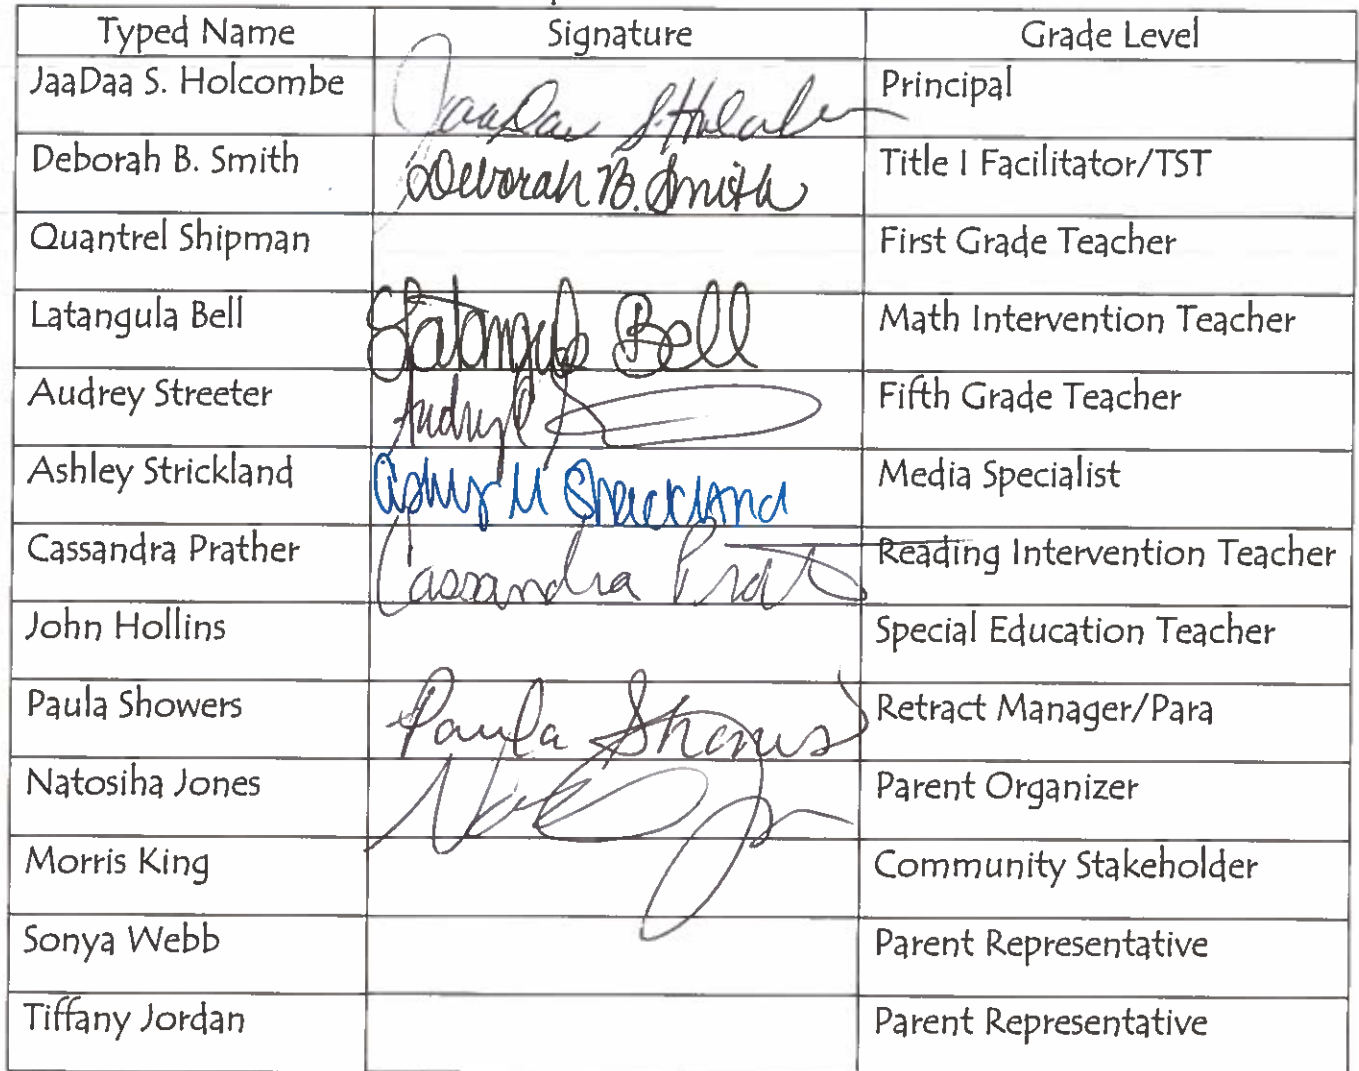 Typed Name Signature Grade Level
JaaDaa S. Holcombe JaaDaa S. Holcombe Principal
Deborah B. Smith Deborah B. Smith Title I Facilitator/TST
Quantrel Shipman First Grade Teacher
Latangula Bell Latangula Bell Math Intervention Teacher
Audrey Streeter Audrey S Fifth Grade Teacher
Ashley Strickland Ashley M Strickland Media Specialist
Cassandra Prather Cassandra Prat Reading Intervention Teacher
John Hollins Special Education Teacher
Paula Showers Paula Showers Retract Manager/Para
Natosiha Jones Parent Organizer
Morris King Community Stakeholder
Sonya Webb Parent Representative
Tiffany Jordan Parent Representative